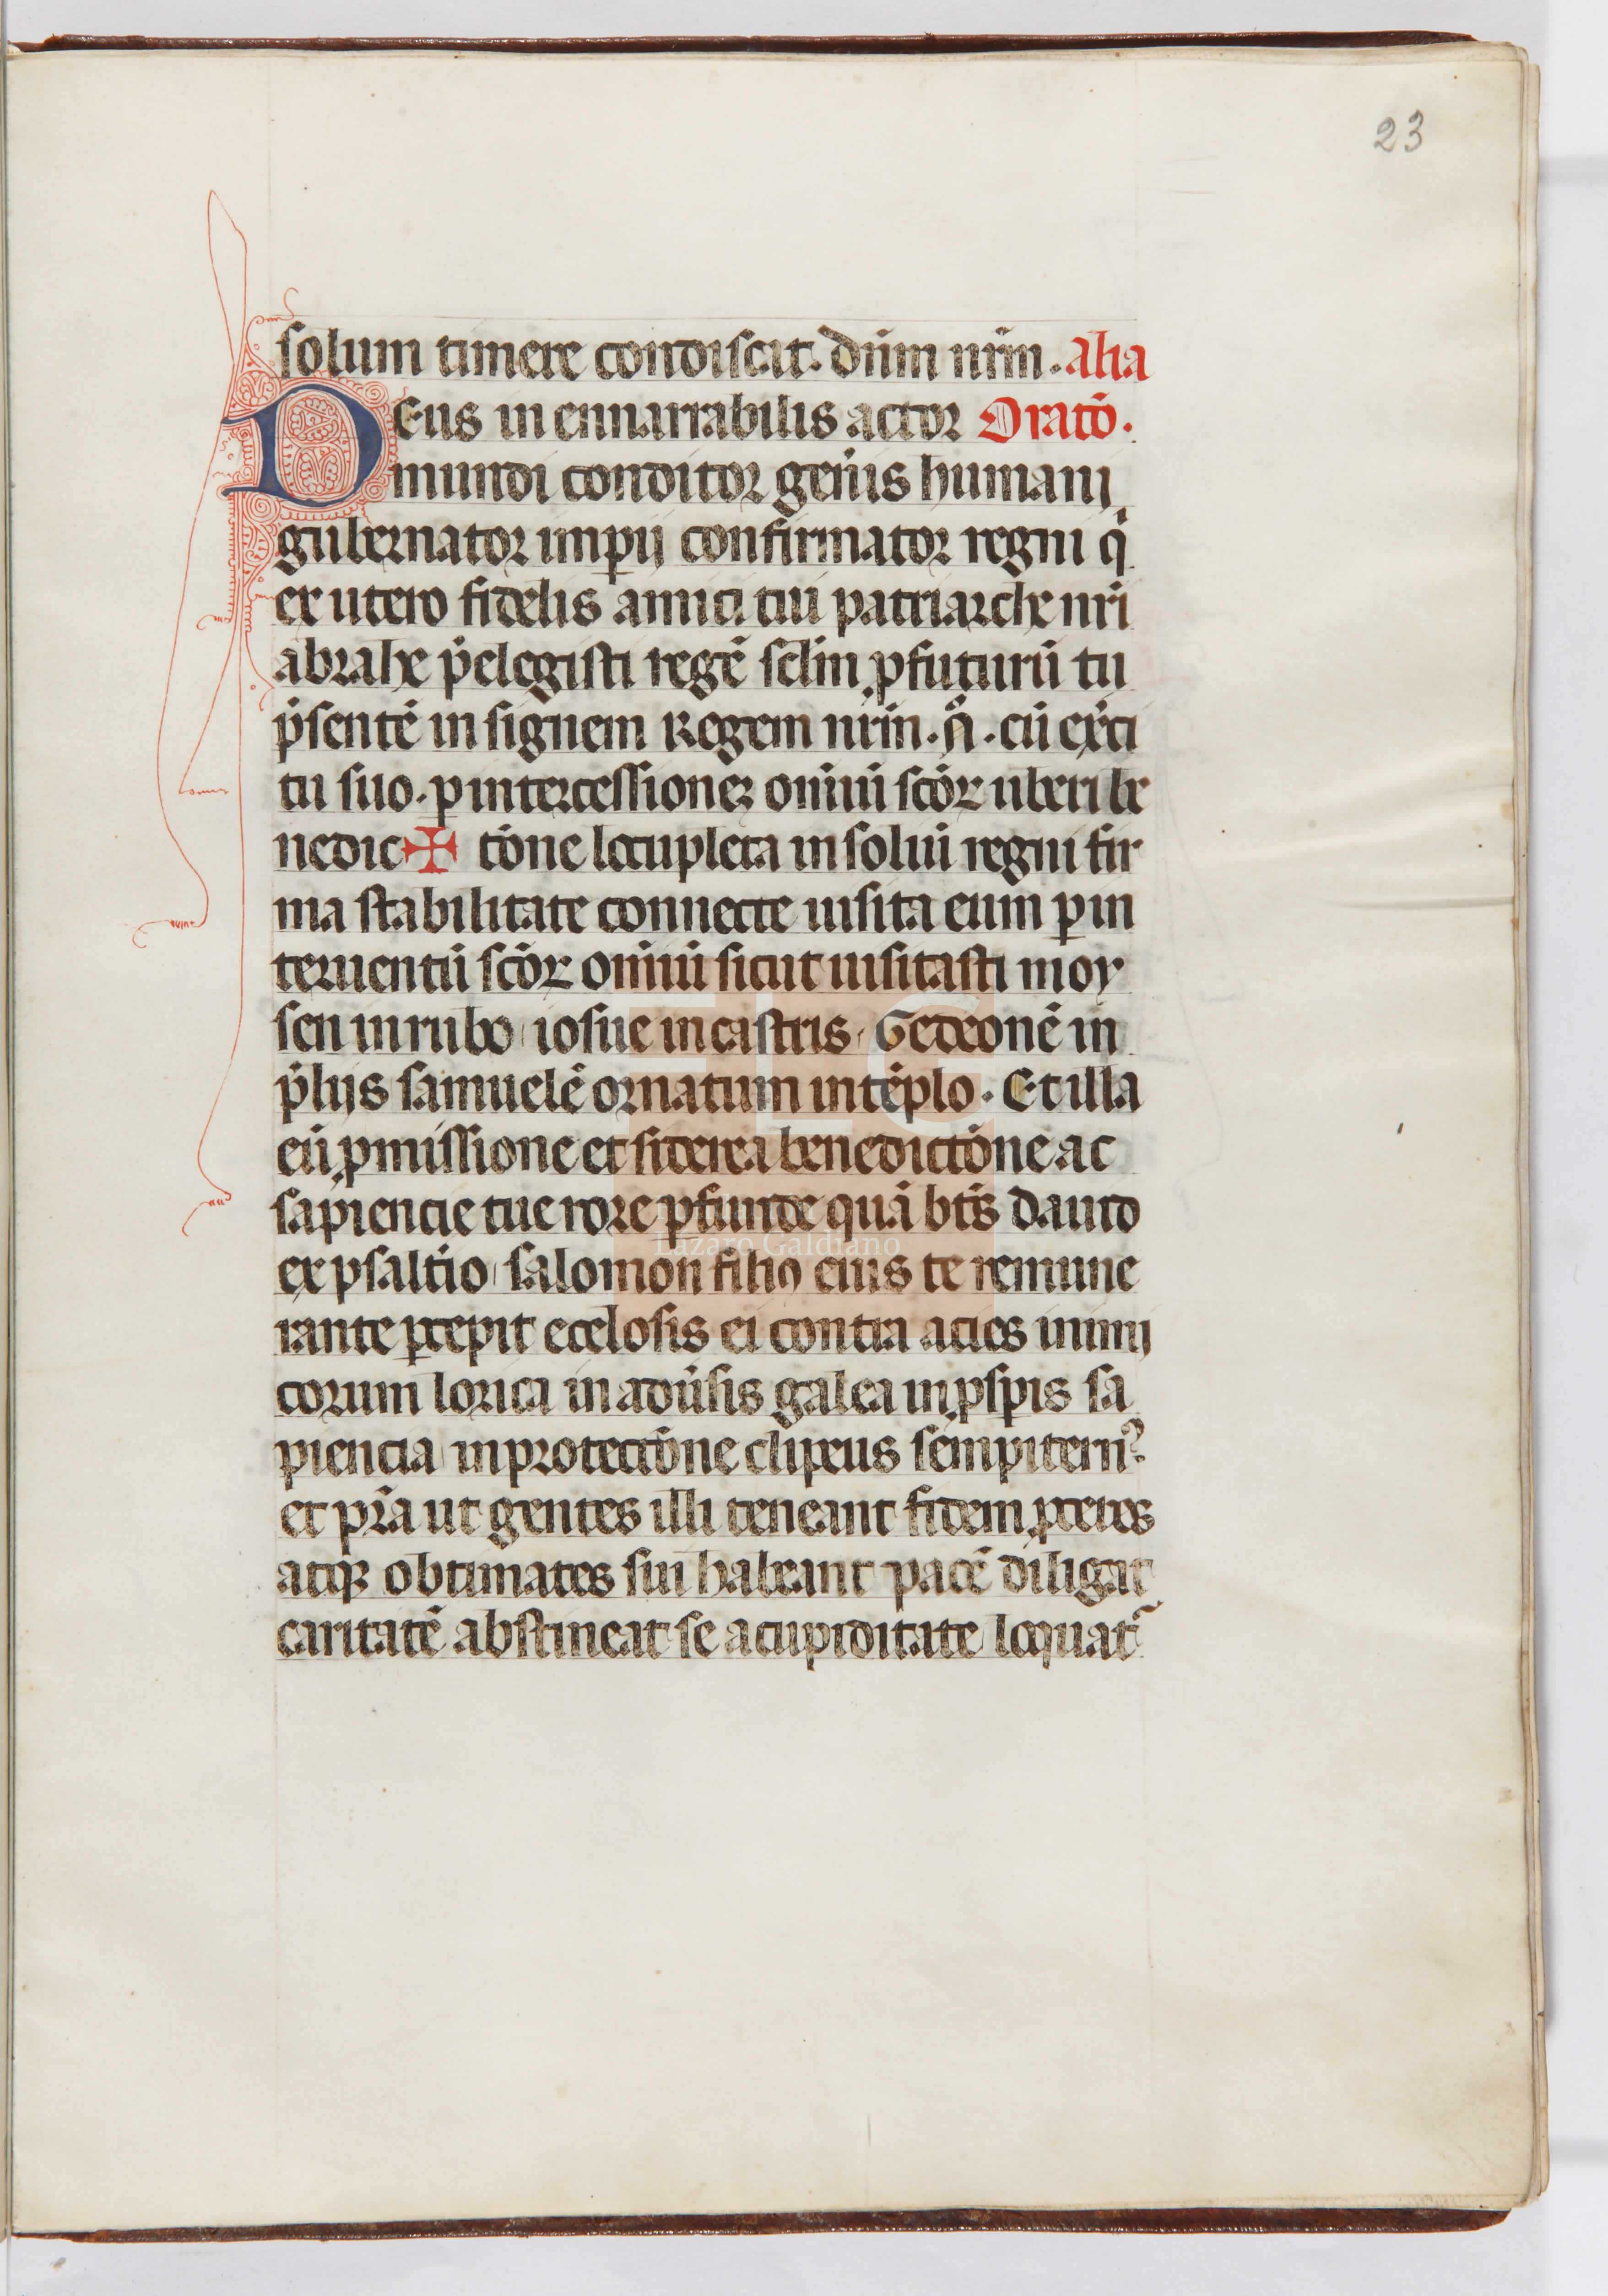 23
solum timere condiscat. dñm nr̃m. alia
DEus in ennarrabilis actor Oratõ.
mundi conditor gen̄is humani
gubernator imꝑij confirmator regni q̇
ex utero fidelis amici tui patriarche nr̃i
abrahe p̃elegisti regẽ sclm̃ ꝓfuturũ tu
p̃sentẽ in signem Regem nr̃m. .cũ ex̃ci
tu suo. ꝑ intercessionez om̃iũ scõꝝ uberi be
nedic✠ tõne locupleta in soliũ regni fir
ma stabilitate connecte uisita eum ꝑ in
teruentũ scõꝝ om̃iũ sicut uisitasti moy
sen in rubo iosue in castris Gedeonẽ in
p̃lijs samuelẽ ornatum in tẽplo. Et illa
eũ ꝓmissione et siderea benedictõne ac
sapiencie tue rore ꝑfunde quã bt̃s dauid
ex psaltio salomon filio eius te remune
rante ꝑcepit e celo sis ei contra acies inimi
corum lorica in adũsis galea in ꝓsꝑis sa
piencia in protectõne clipeus sempitern
et pr̃a ut gentes illi teneant fidem ꝓceres
atqꝫ obtimates sui habeant pacẽ diligãt
caritatẽ abstineat se a cupiditate loquat̃
Lázaro Galdiano